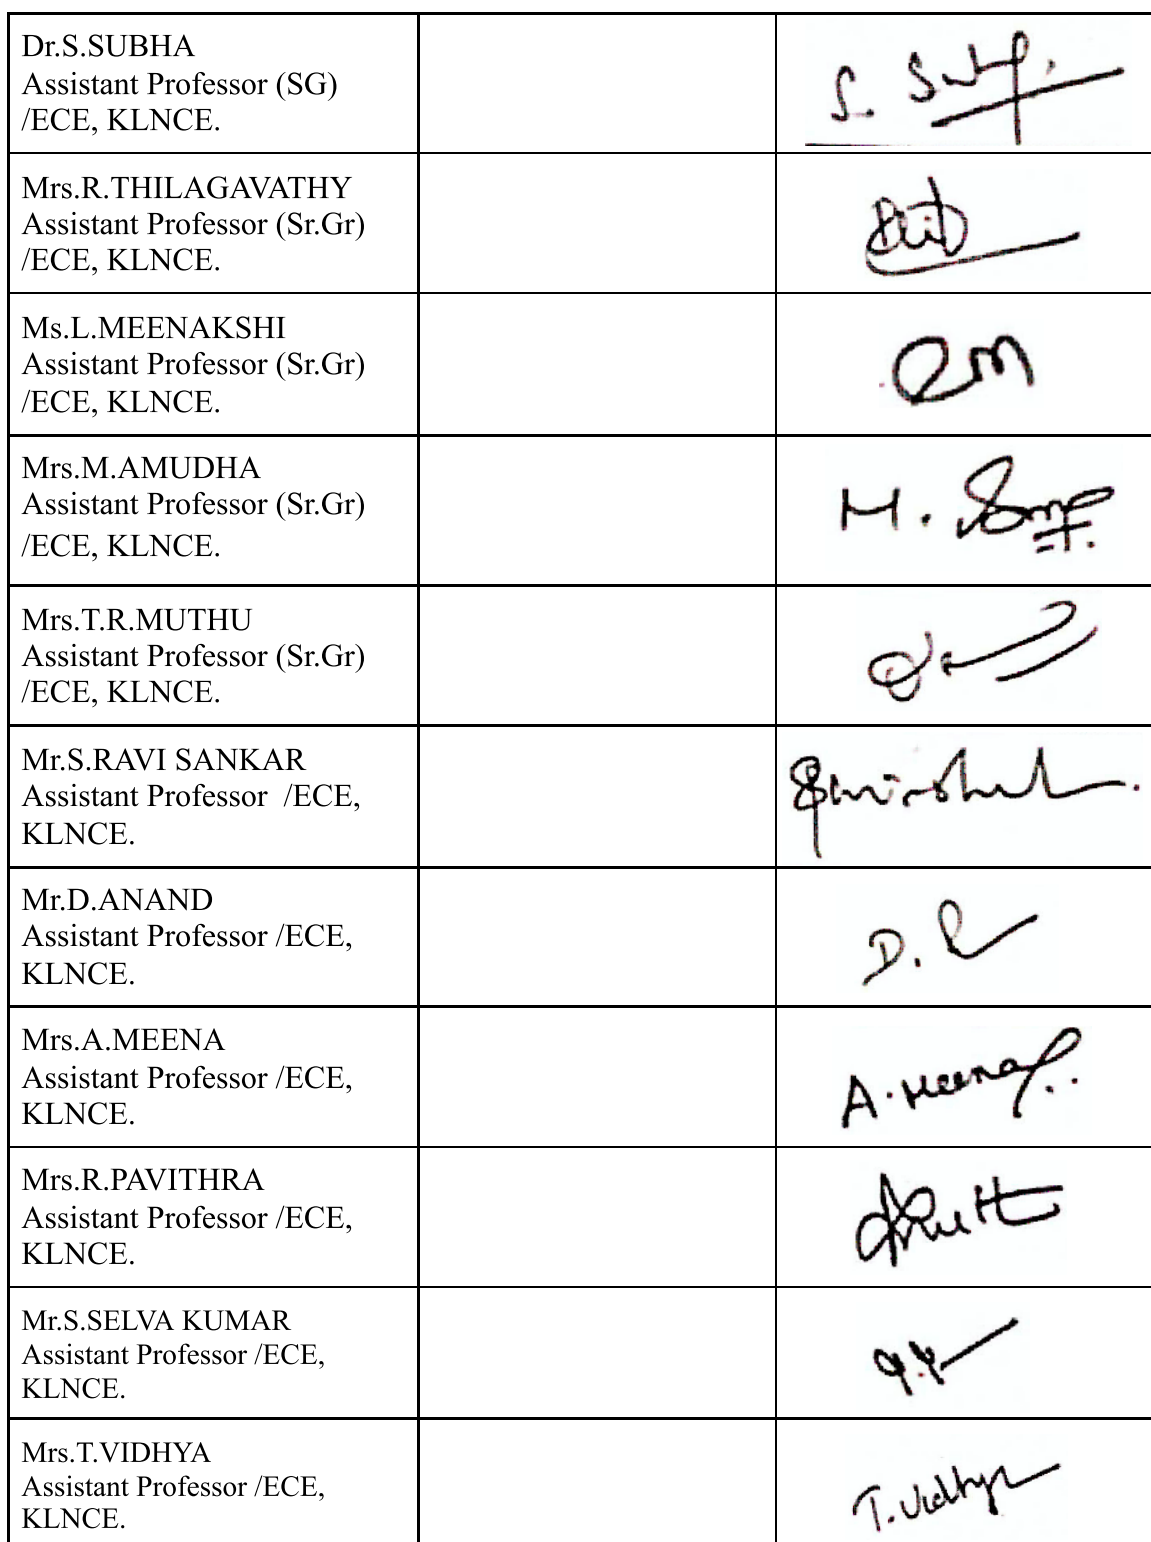 Dr.S.SUBHA
Assistant Professor (SG)
/ECE, KLNCE.
Mrs.R.THILAGAVATHY
Assistant Professor (Sr.Gr)
/ECE, KLNCE.
Ms.L.MEENAKSHI
Assistant Professor (Sr.Gr)
/ECE, KLNCE.
Mrs.M.AMUDHA
Assistant Professor (Sr.Gr)
/ECE, KLNCE.
Mrs.T.R.MUTHU
Assistant Professor (Sr.Gr)
/ECE, KLNCE.
Mr.S.RAVI SANKAR
Assistant Professor  /ECE,
KLNCE.
Mr.D.ANAND
Assistant Professor /ECE,
KLNCE.
Mrs.A.MEENA
Assistant Professor /ECE,
KLNCE.
A.Meena
Mrs.R.PAVITHRA
Assistant Professor /ECE,
KLNCE.
Mr.S.SELVA KUMAR
Assistant Professor /ECE,
KLNCE.
Mrs.T.VIDHYA
Assistant Professor /ECE,
KLNCE.
T.Vidhya